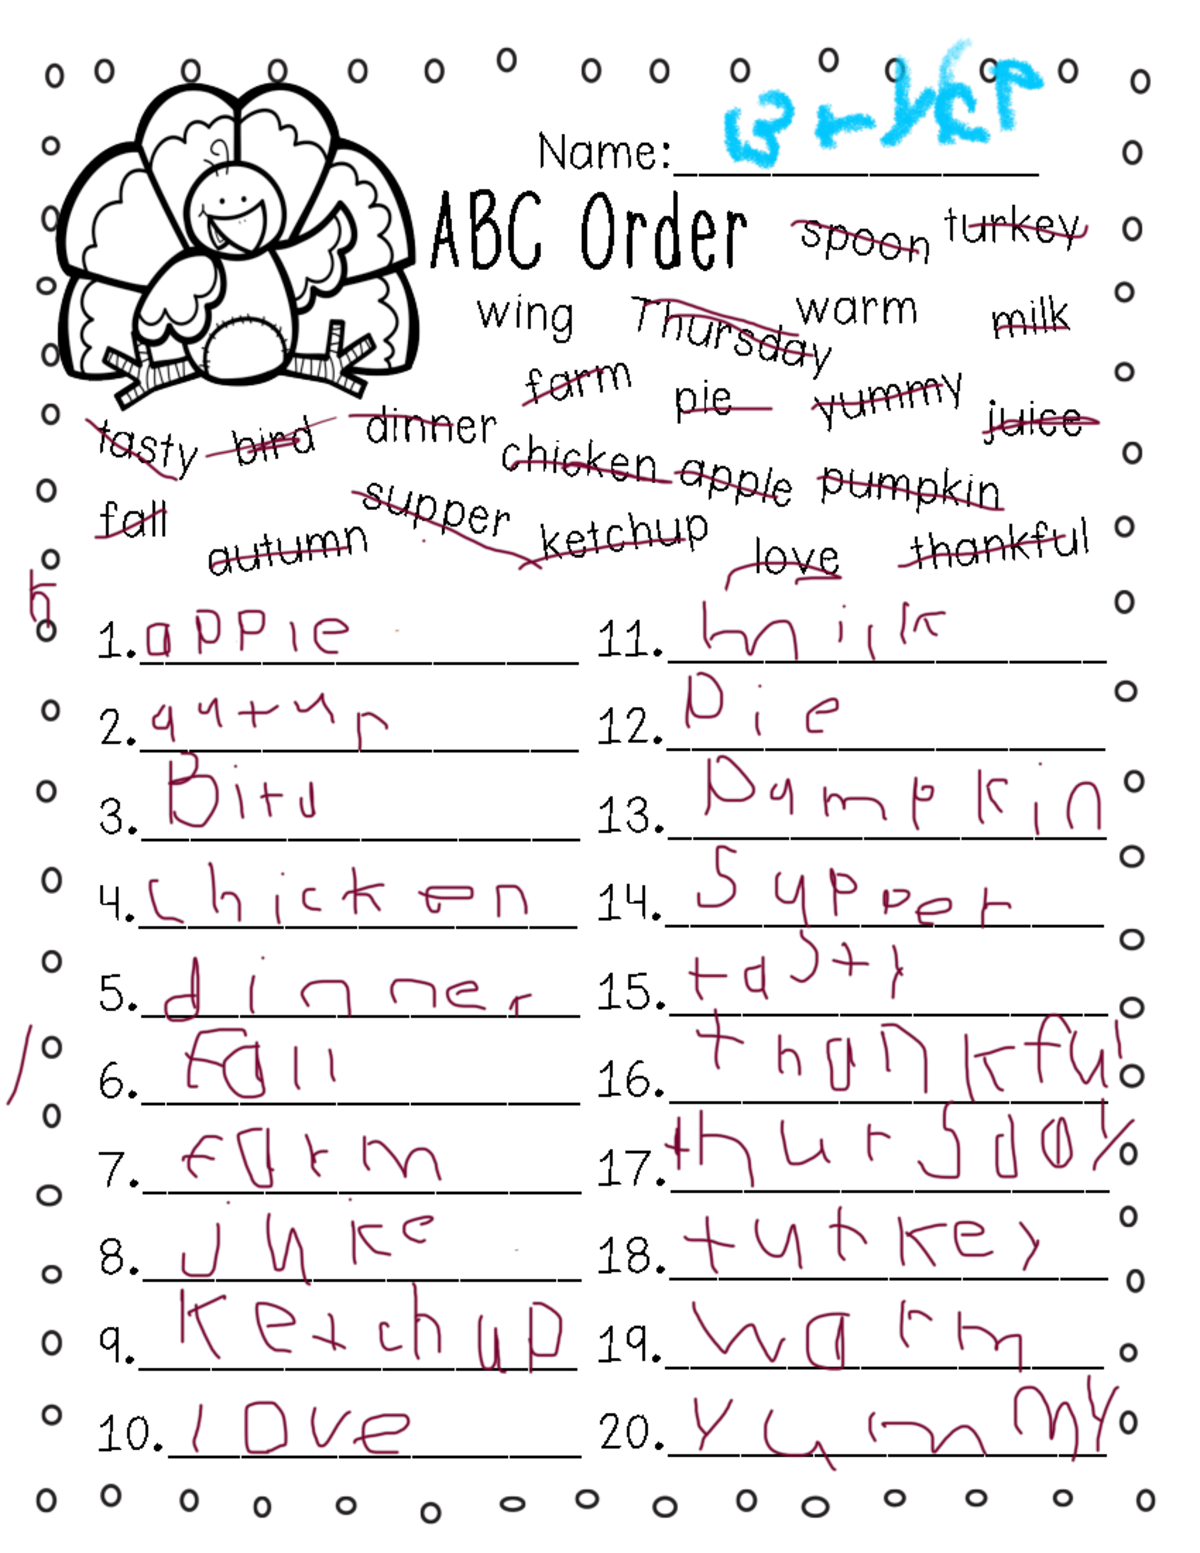 Name: Bryker
ABC Order
spoon turkey
wing Thursday warm milk
farm pie yummy juice
tasty bird dinner chicken apple pumpkin
fall autumn supper ketchup love thankful
h
1. apple
2. autum
3. Bird
4. chicken
5. dinner
6. Fall
7. farm
8. juice
9. Ketchup
10. love
11. milk
12. Pie
13. Pumpkin
14. Supper
15. tasty
16. thankful
17. thursday
18. turkey
19. warm
20. yummy